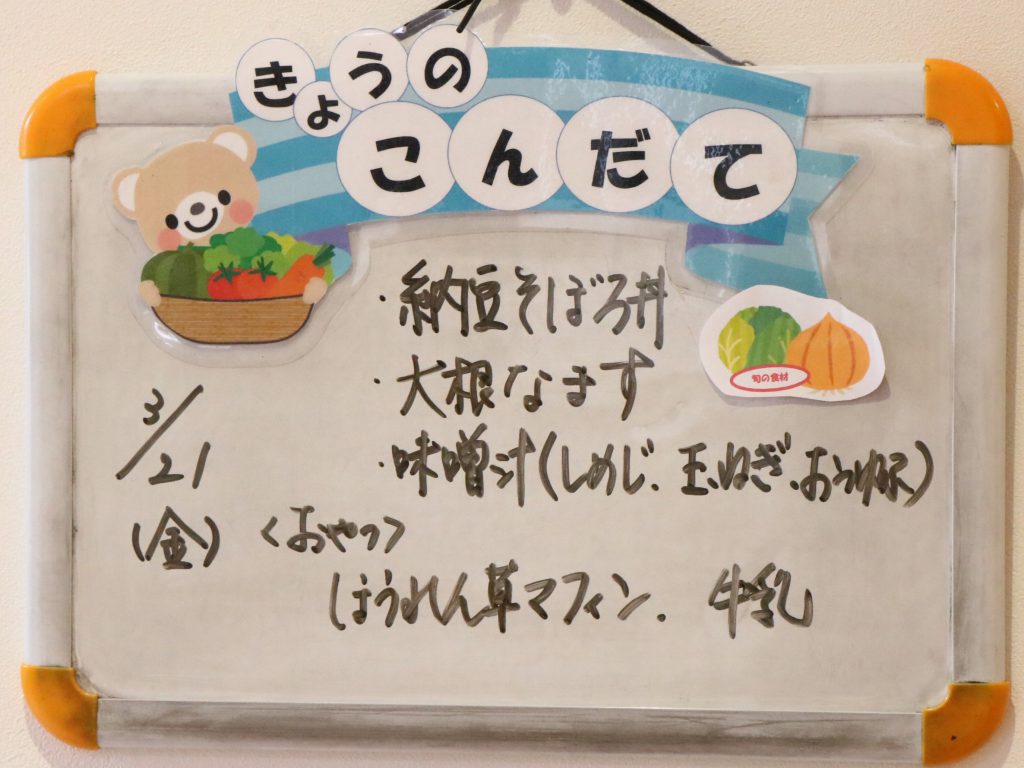 きょうの
こんだて
・納豆そぼろ丼
旬の食材
・大根なます
3/21
・味噌汁(しめじ、玉ねぎ、おつゆ麩)
(金)
<おやつ>
ほうれん草マフィン、牛乳